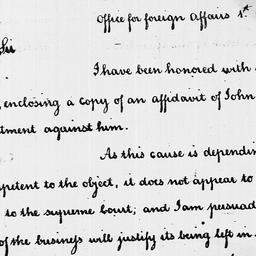 Office for foreign Affairs 1.st
Sir
I have been honored with
enclosing a copy of an affidavit of John
tment against him.
As this cause is dependin
petent to the object, it does not appear to
to the supreme Court; and I am persuad
of the business will justify its being left in